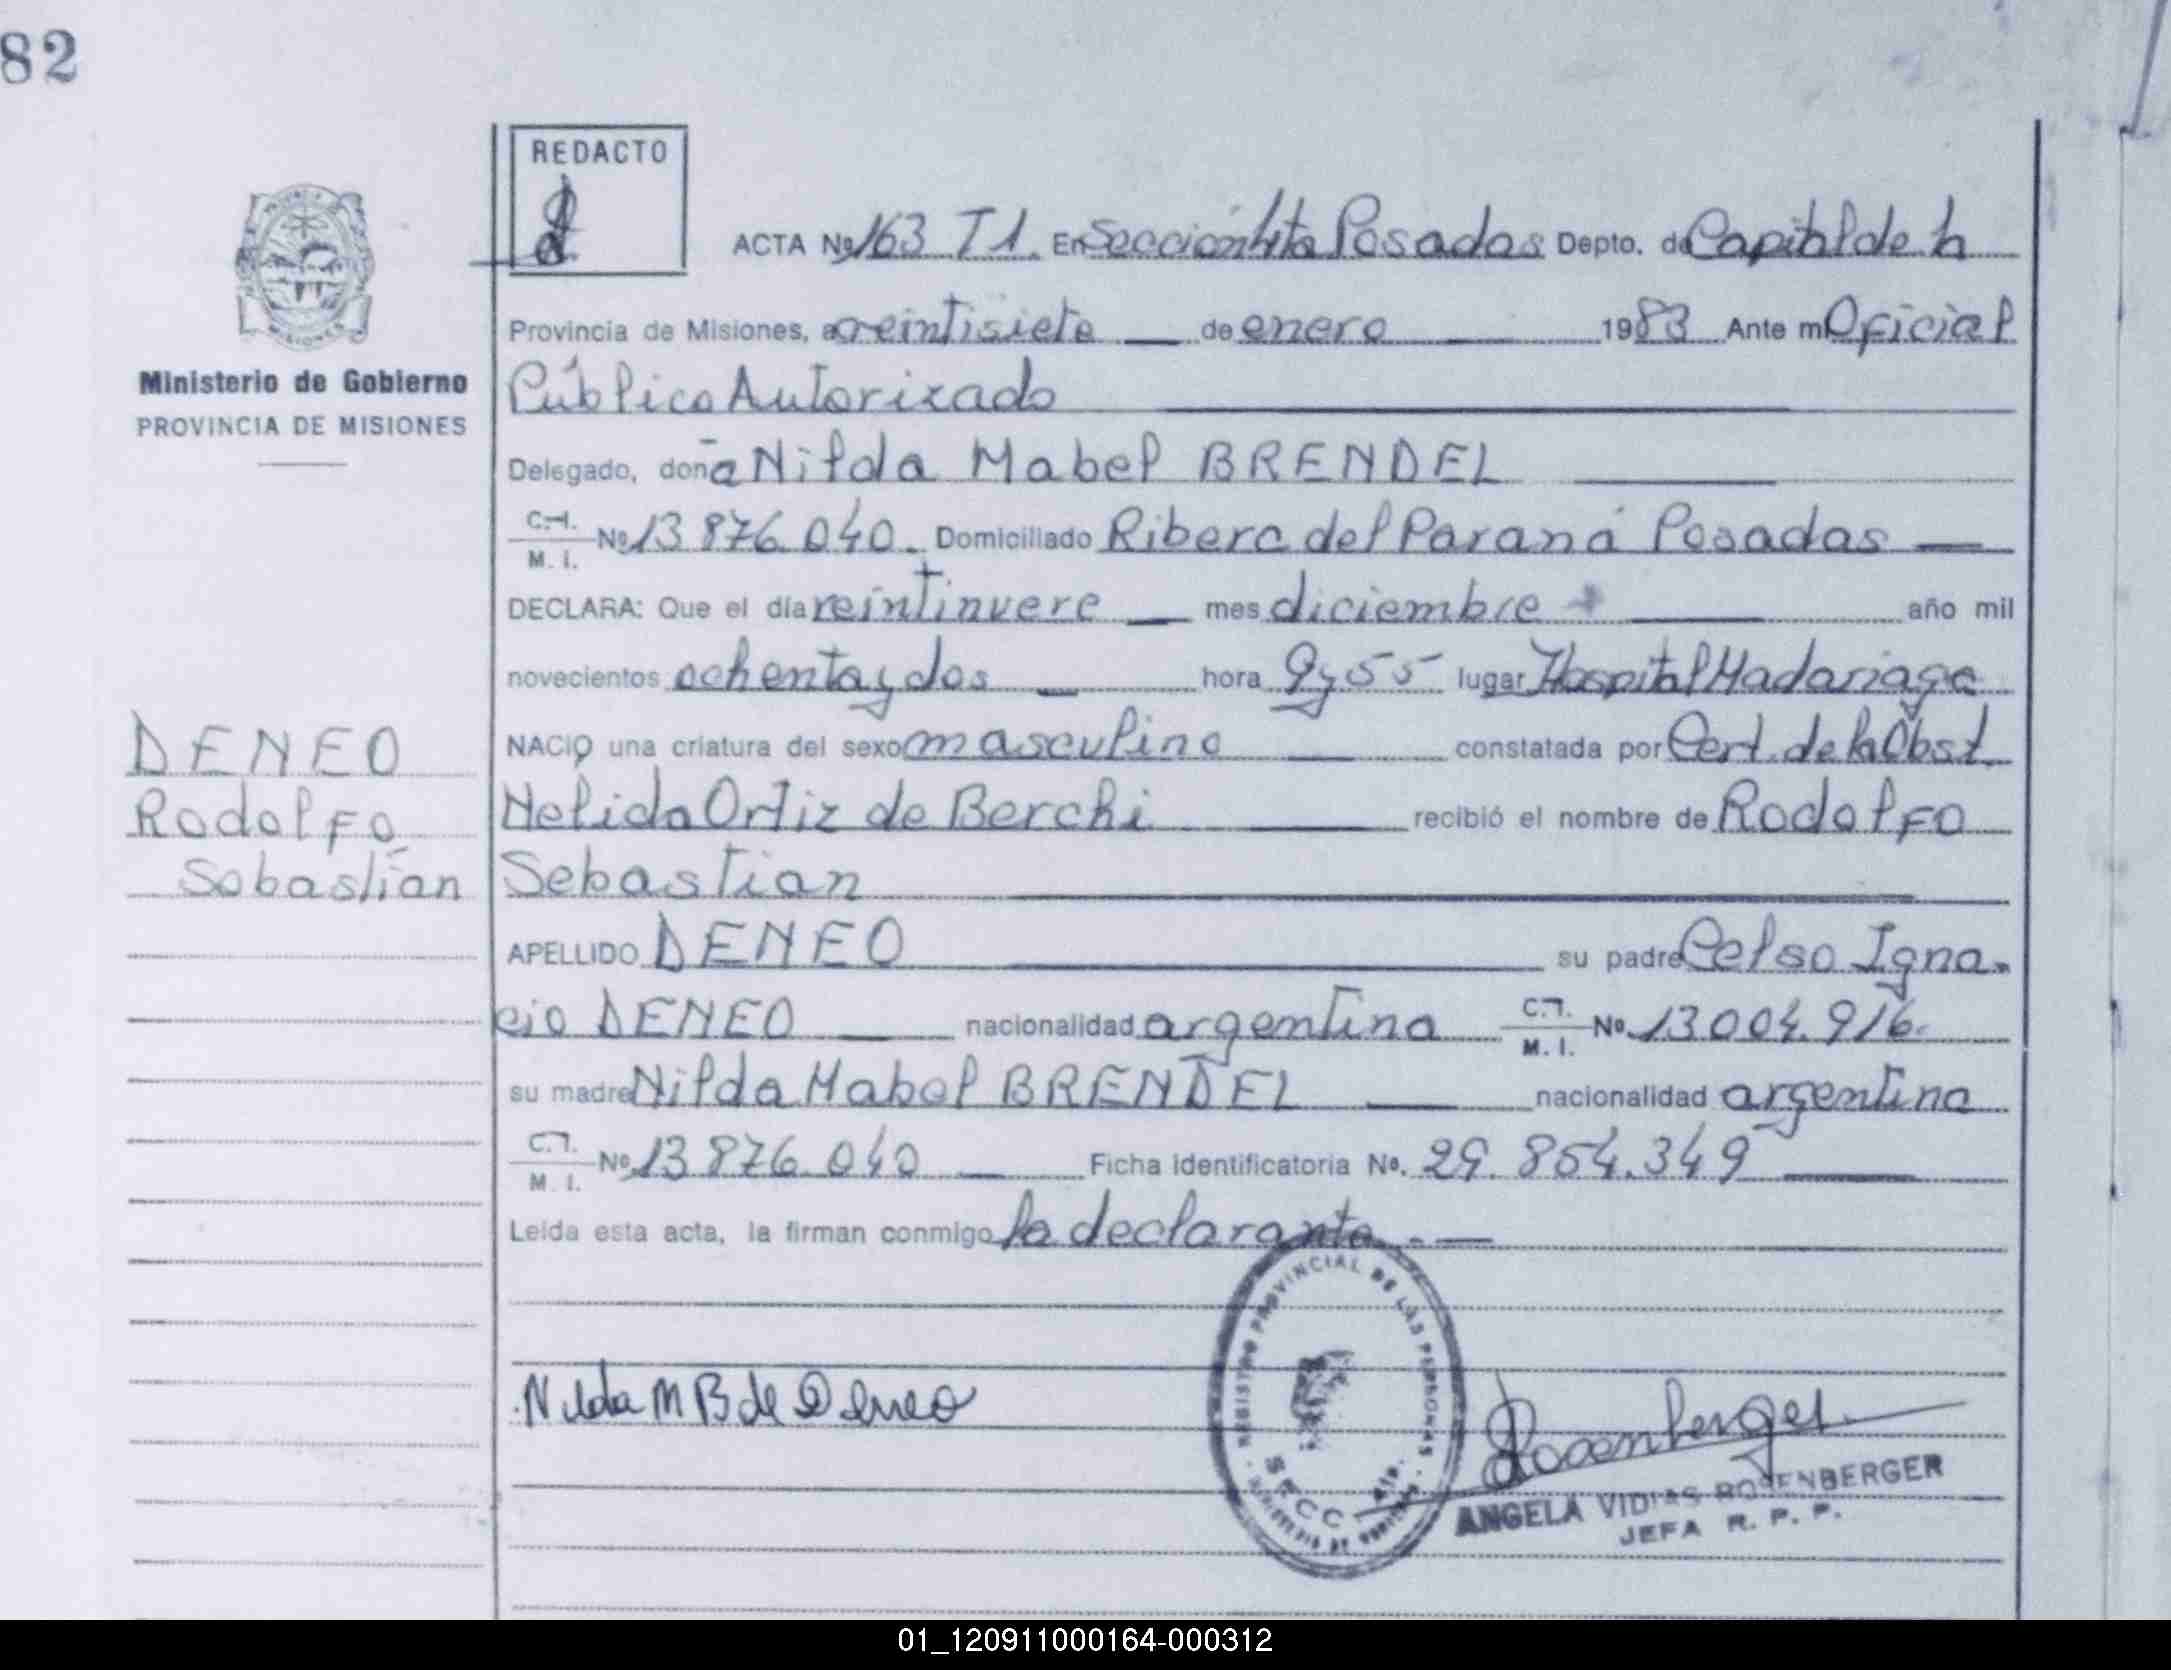 82
REDACTO
ACTA Nº 163 T1. En Sección 4ta Posadas Depto. de Capital de la
Provincia de Misiones, a veintisiete de enero 1983 Ante mi Oficial
Público Autorizado
Ministerio de Gobierno
PROVINCIA DE MISIONES
Delegado, doña Nilda Mabel BRENDEL
C. I. M. I. Nº 13 876.040. Domiciliado Ribera del Paraná Posadas
DECLARA: Que el día veintinueve mes diciembre año mil
novecientos ochenta y dos hora 9 y 55 lugar Hospital Madariaga
NACIO una criatura del sexo masculino constatada por Cert. de la Obst.
DENEO
Nelida Ortiz de Berchi recibió el nombre de Rodolfo
Rodolfo
Sebastian
Sebastián
APELLIDO DENEO su padre Celso Igna-
cio DENEO nacionalidad argentina C. I. M. I. Nº 13 004.916.
su madre Nilda Mabel BRENDEL nacionalidad argentina
C. I. M. I. Nº 13 876.040 Ficha identificatoria Nº. 29.854.349
Leída esta acta, la firman conmigo la declarante.
REGISTRO PROVINCIAL DE LAS PERSONAS
SECC. 4ta.
Nilda M B de Deneo
Rosenberger
ANGELA VIDIAS ROSENBERGER
JEFA R. P. P.
01_120911000164-000312